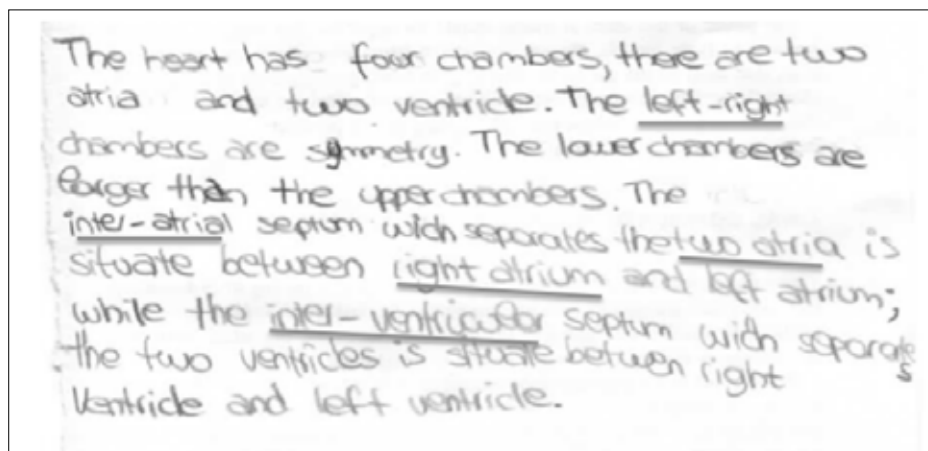 The heart has four chambers, there are two
atria and two ventricle. The left-right
chambers are symmetry. The lower chambers are
larger than the upper chambers. The
inter-atrial septum wich separates the two atria is
situate between right atrium and left atrium;
while the inter-ventricular septum wich separates
the two ventricles is situate between right
ventricle and left ventricle.